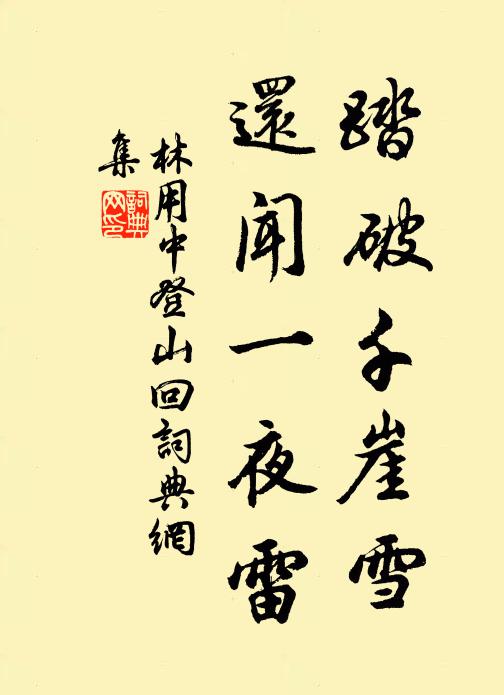 踏破千崖雪
還聞一夜雷
林用中登山回詞典網
集
詞典
网印